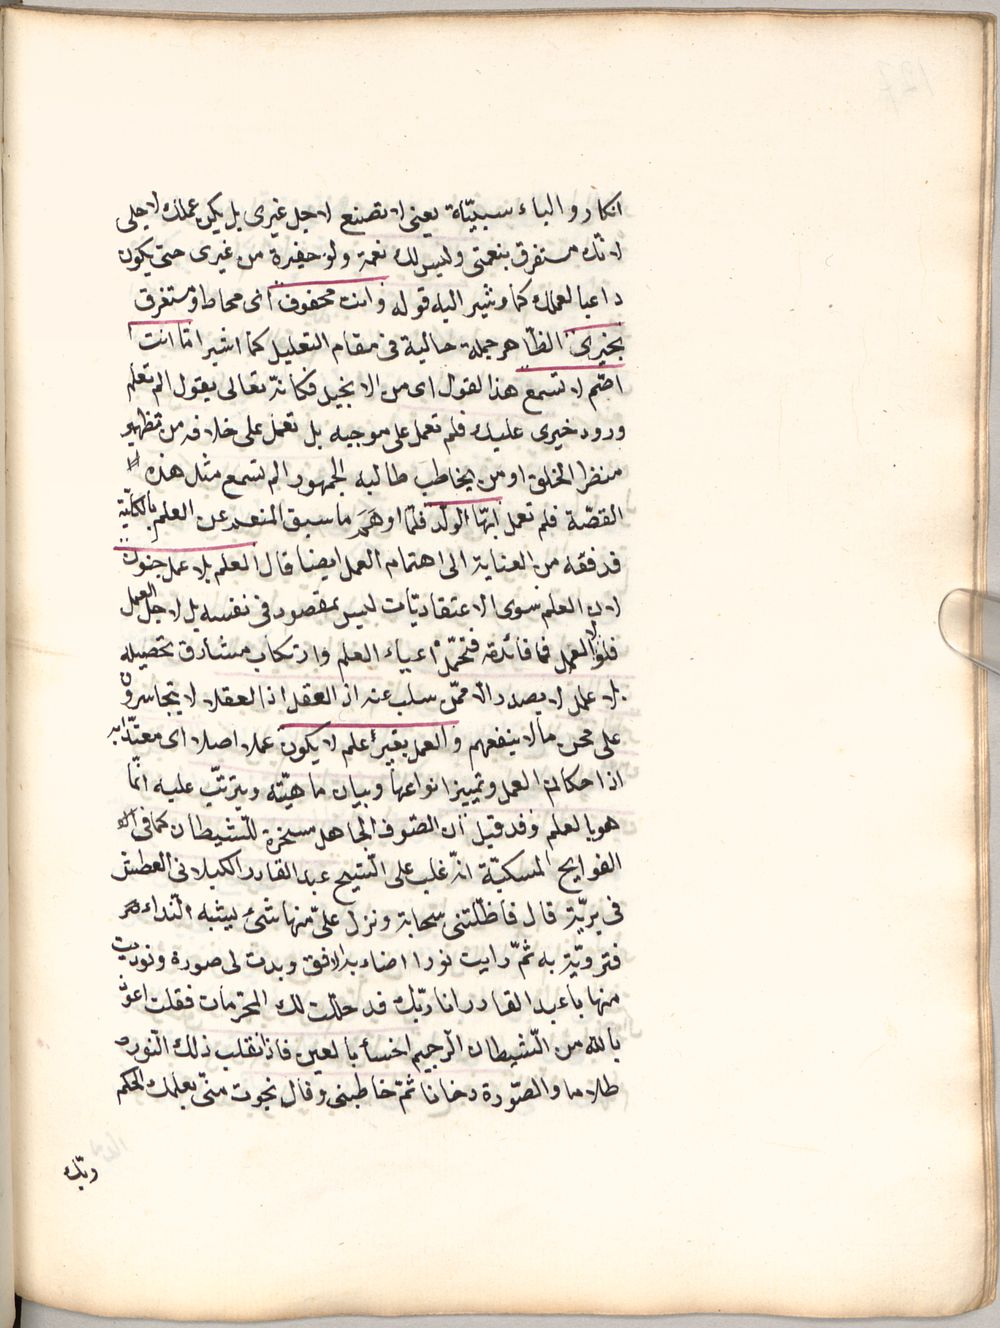 انكار والباء سببيّة يعنى لا تصنع لاجل غيرى بل يكن عملك لاجلى
لانّك مستغرق بنعمتى وليس لك نعمة ولو حقيرة من غيرى حتى يكون
داعيا لعملك كما يشير اليه قوله وانت محفوف اى محاط ومستغرق
بخيرى الظاهر جملة حالية فى مقام التعليل كما اشير امّا انت
اصمّ لا تسمع هذا القول اى من الانجيل فكانّه تعالى يقول الم تعلم
ورود خيرى عليك فلم تعمل على موجبه بل تعمل على خلافه من تطهير
منظر الخلق او من يخاطب طالبه الجمهور الم تسمع مثل هذه
القصّة فلم تعمل ايّها الولد فلمّا اوهم ما سبق المنع عن العلم بالكلّيّة
قد فقه من العناية الى اهتمام العمل ايضا قال العلم بلا عمل جنون
لان العلم سوى الاعتقاديّات ليس بمقصود فى نفسه بل لاجل العمل
فلولا العمل فما فائدة فتحمّل اعياء العلم وارتكاب مشاق تحصيله
بلا عمل لا يصدر الا ممّن سلب عنه اذ العقل اذ العقلا لا يتجاسرون
على محن ما لا ينفعهم والعمل بغير علم لا يكون عملا اصلا اى معتدّا به
اذ احكام العمل وتمييز انواعها وبيان ماهيّته ويترتّب عليه انّما
هو بالعلم وقد قيل ان الصّوف الجاهل سخرة للشيطان كما فى
الفوايح المسكيّة انّه غلب على الشيخ عبد القادر الكيلانى العطش
فى بريّة قال فاظلّتنى سحابة ونزل علىّ منها شئ يشبه النداء
فترويّة به ثمّ رايت نورا اضاء به الافق وبدت لى صورة ونوديت
منها يا عبد القادر انا ربّك قد حلّلت لك المحرّمات فقلت اعوذ
بالله من الشيطان الرجيم اخسأ يا لعين فاذا انقلب ذلك النور
ظلاما والصّورة دخانا ثمّ خاطبنى وقال نجوت منّى بعلمك الحكم
وبّك